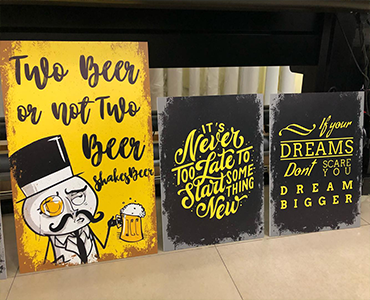 Two Beer
or not Two
Beer
ShakesBeer
IT'S
Never
TOO Late TO
Start SOME
THING
New
If your
DREAMS
Don't SCARE
YOU
DREAM
BIGGER